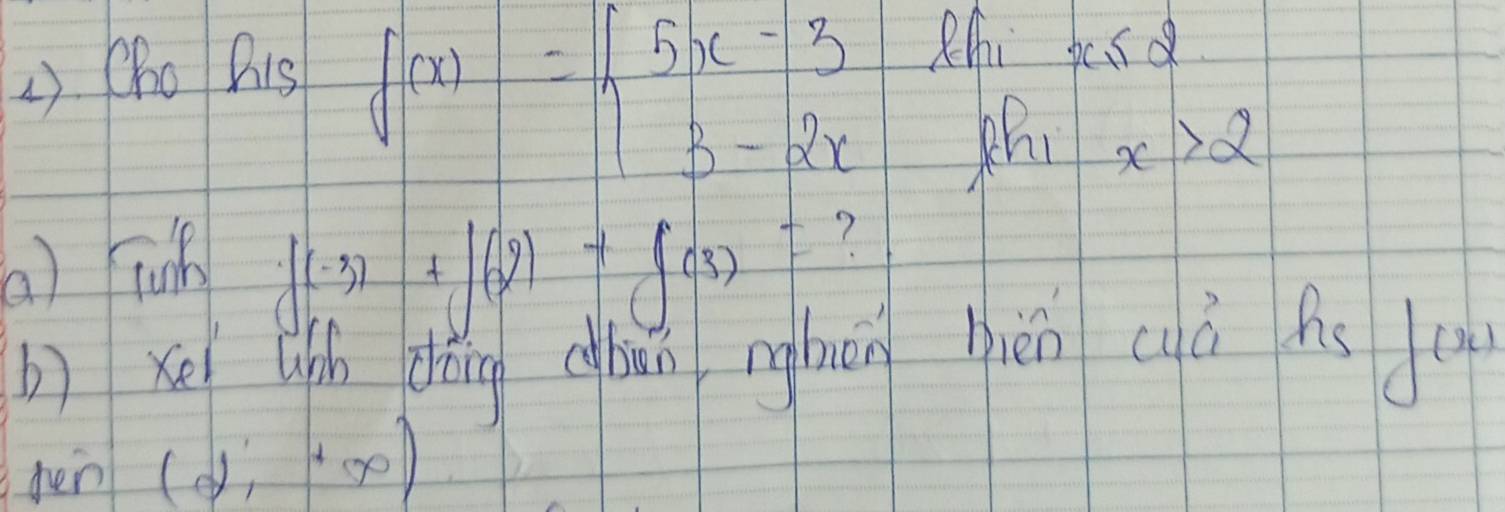 1) Cho h/s f(x) = { 5x - 3 khi x ≤ 2
3 - 2x khi x > 2
a) Tính f(-3) + f(2) + f(3) = ?
b) Xét tính đồng biến, nghiên biến của hs f(x)
trên (2; +∞)